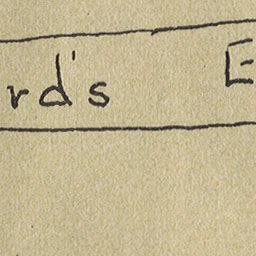 rd's E